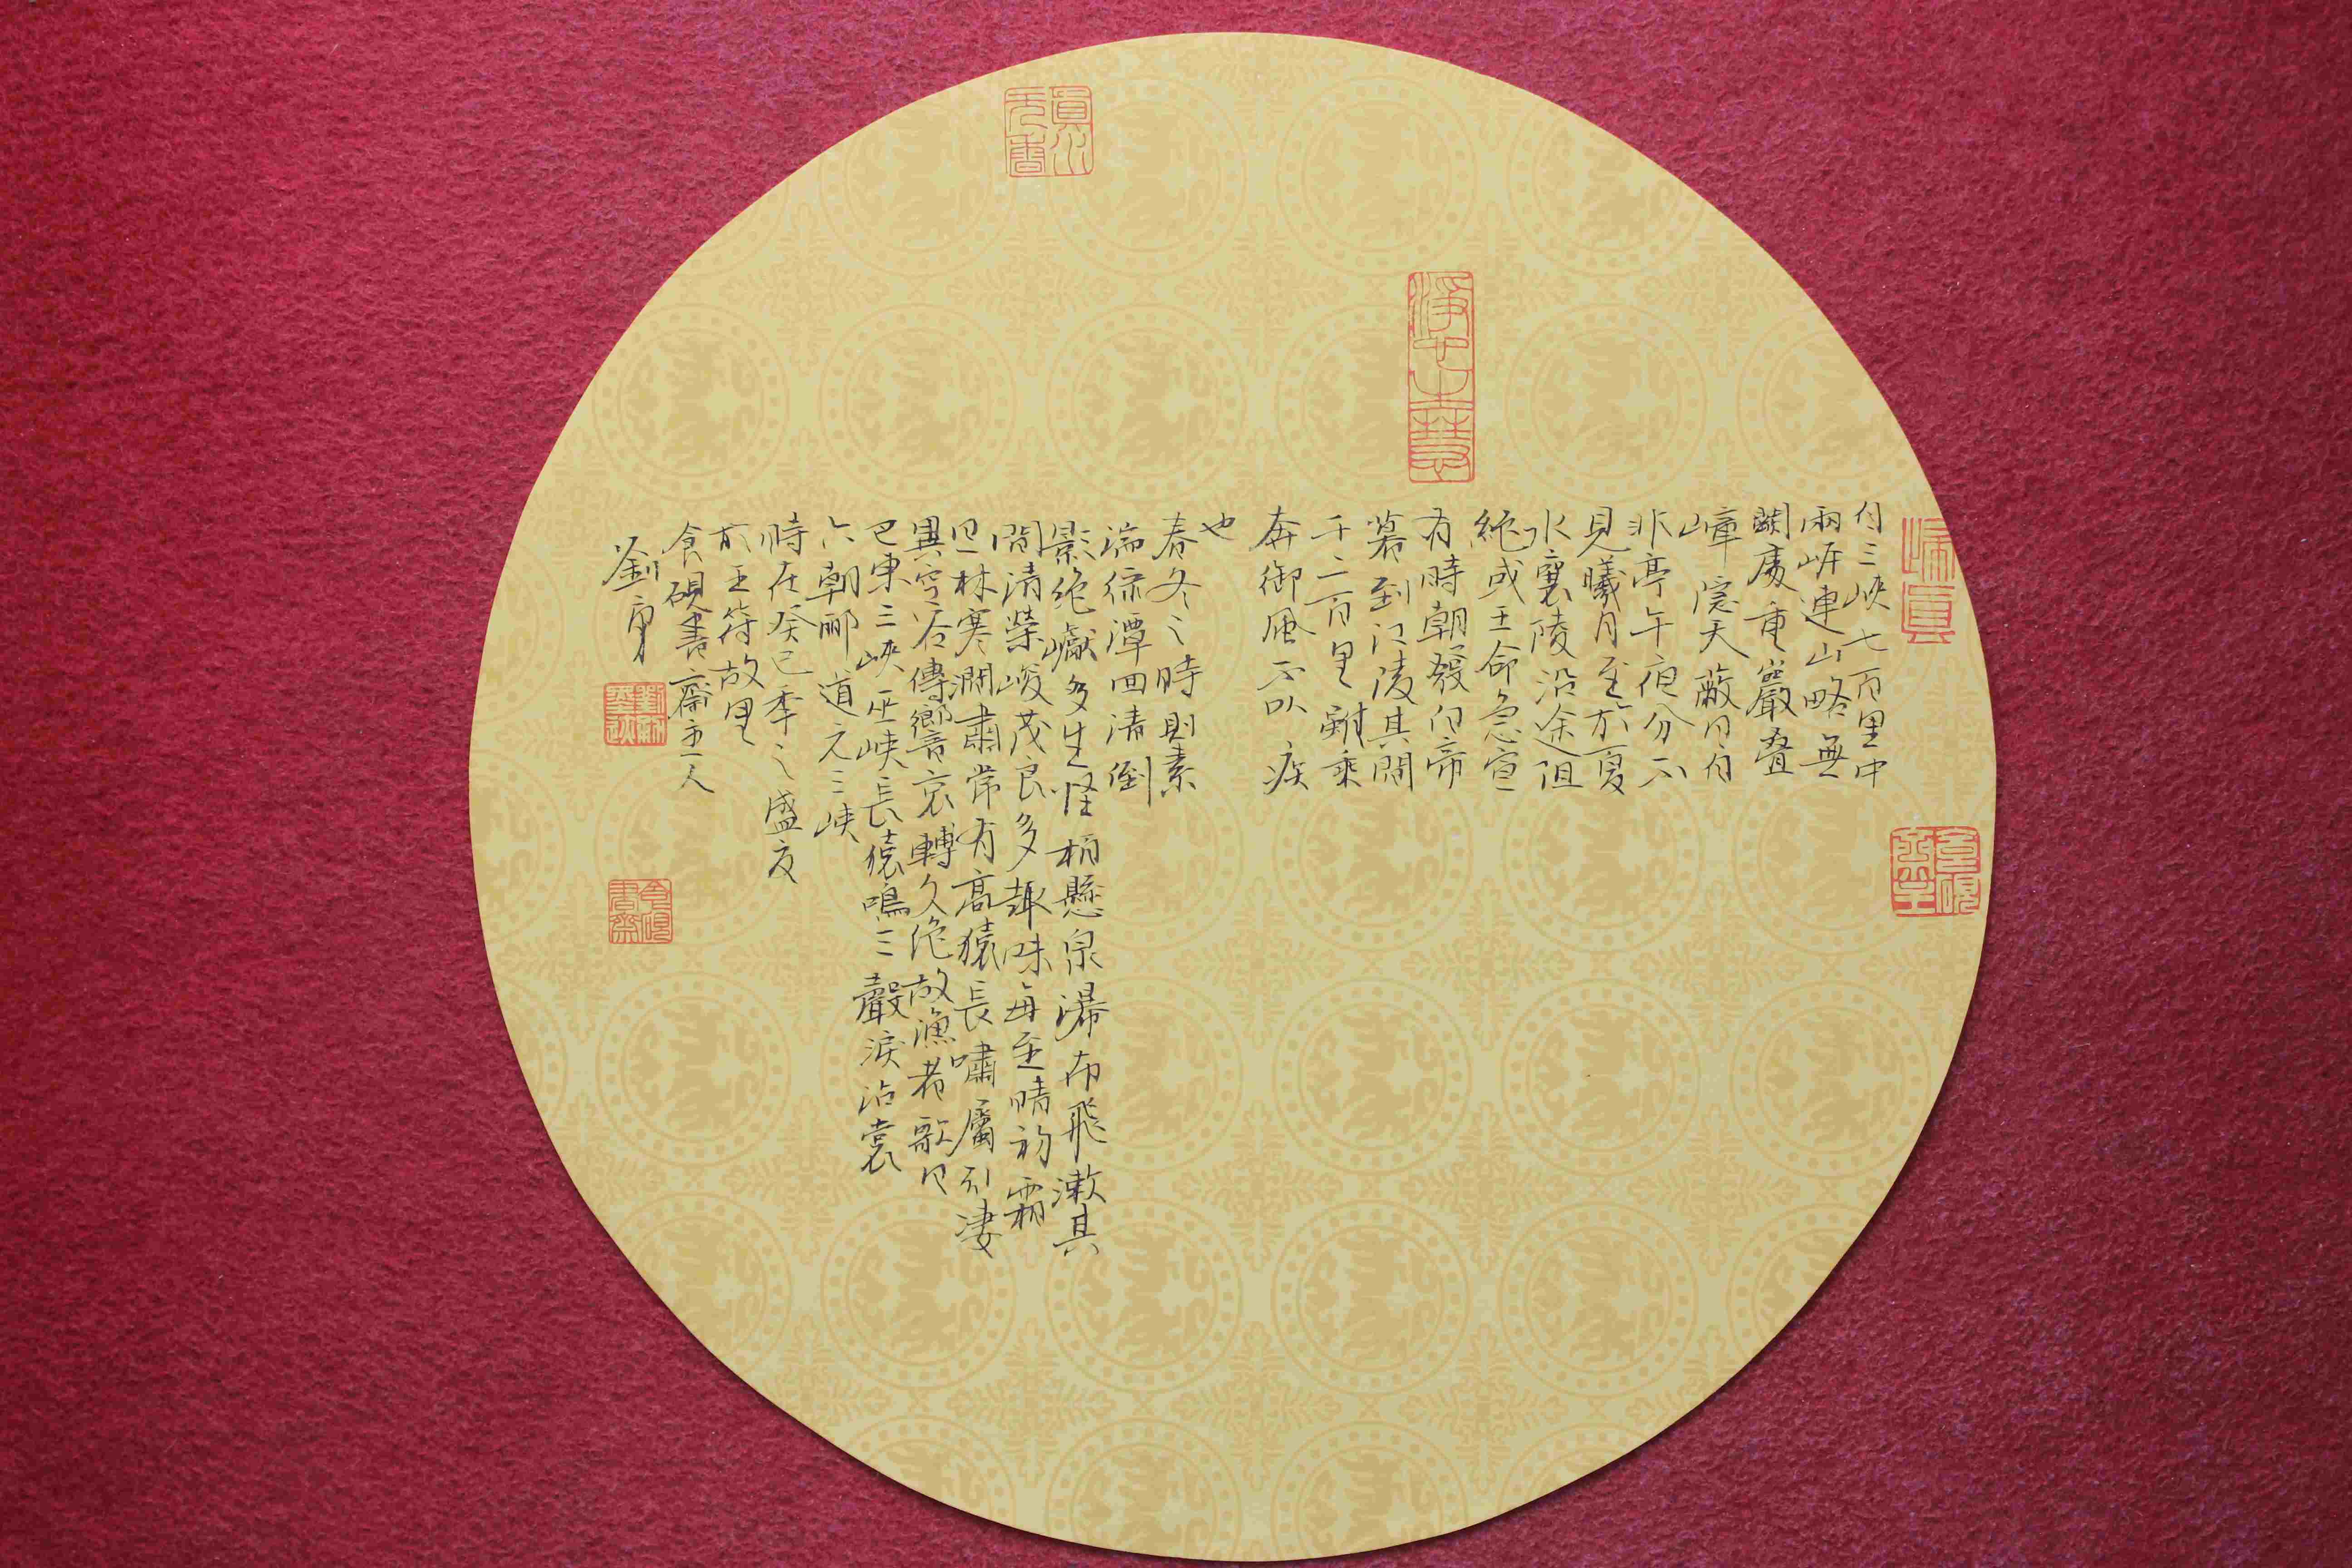 自三峽七百里中
兩岸連山略無
闕處重巖疊
嶂隱天蔽日自
非亭午夜分不
見曦月至於夏
水襄陵沿途阻
絶或王命急宣
有時朝發白帝
暮到江陵其間
千二百里雖乘
奔御風不以疾
也
春冬之時則素
湍綠潭回清倒
影絶巘多生怪柏懸泉瀑布飛漱其
間清榮峻茂良多趣味每至晴初霜
旦林寒澗肅常有高猿長嘯屬引淒
異空谷傳響哀轉久絶故漁者歌曰
巴東三峽巫峽長猿鳴三聲淚沾裳
六朝酈道元三峽
時在癸巳季之盛夏
於王符故里
食硯書齋主人